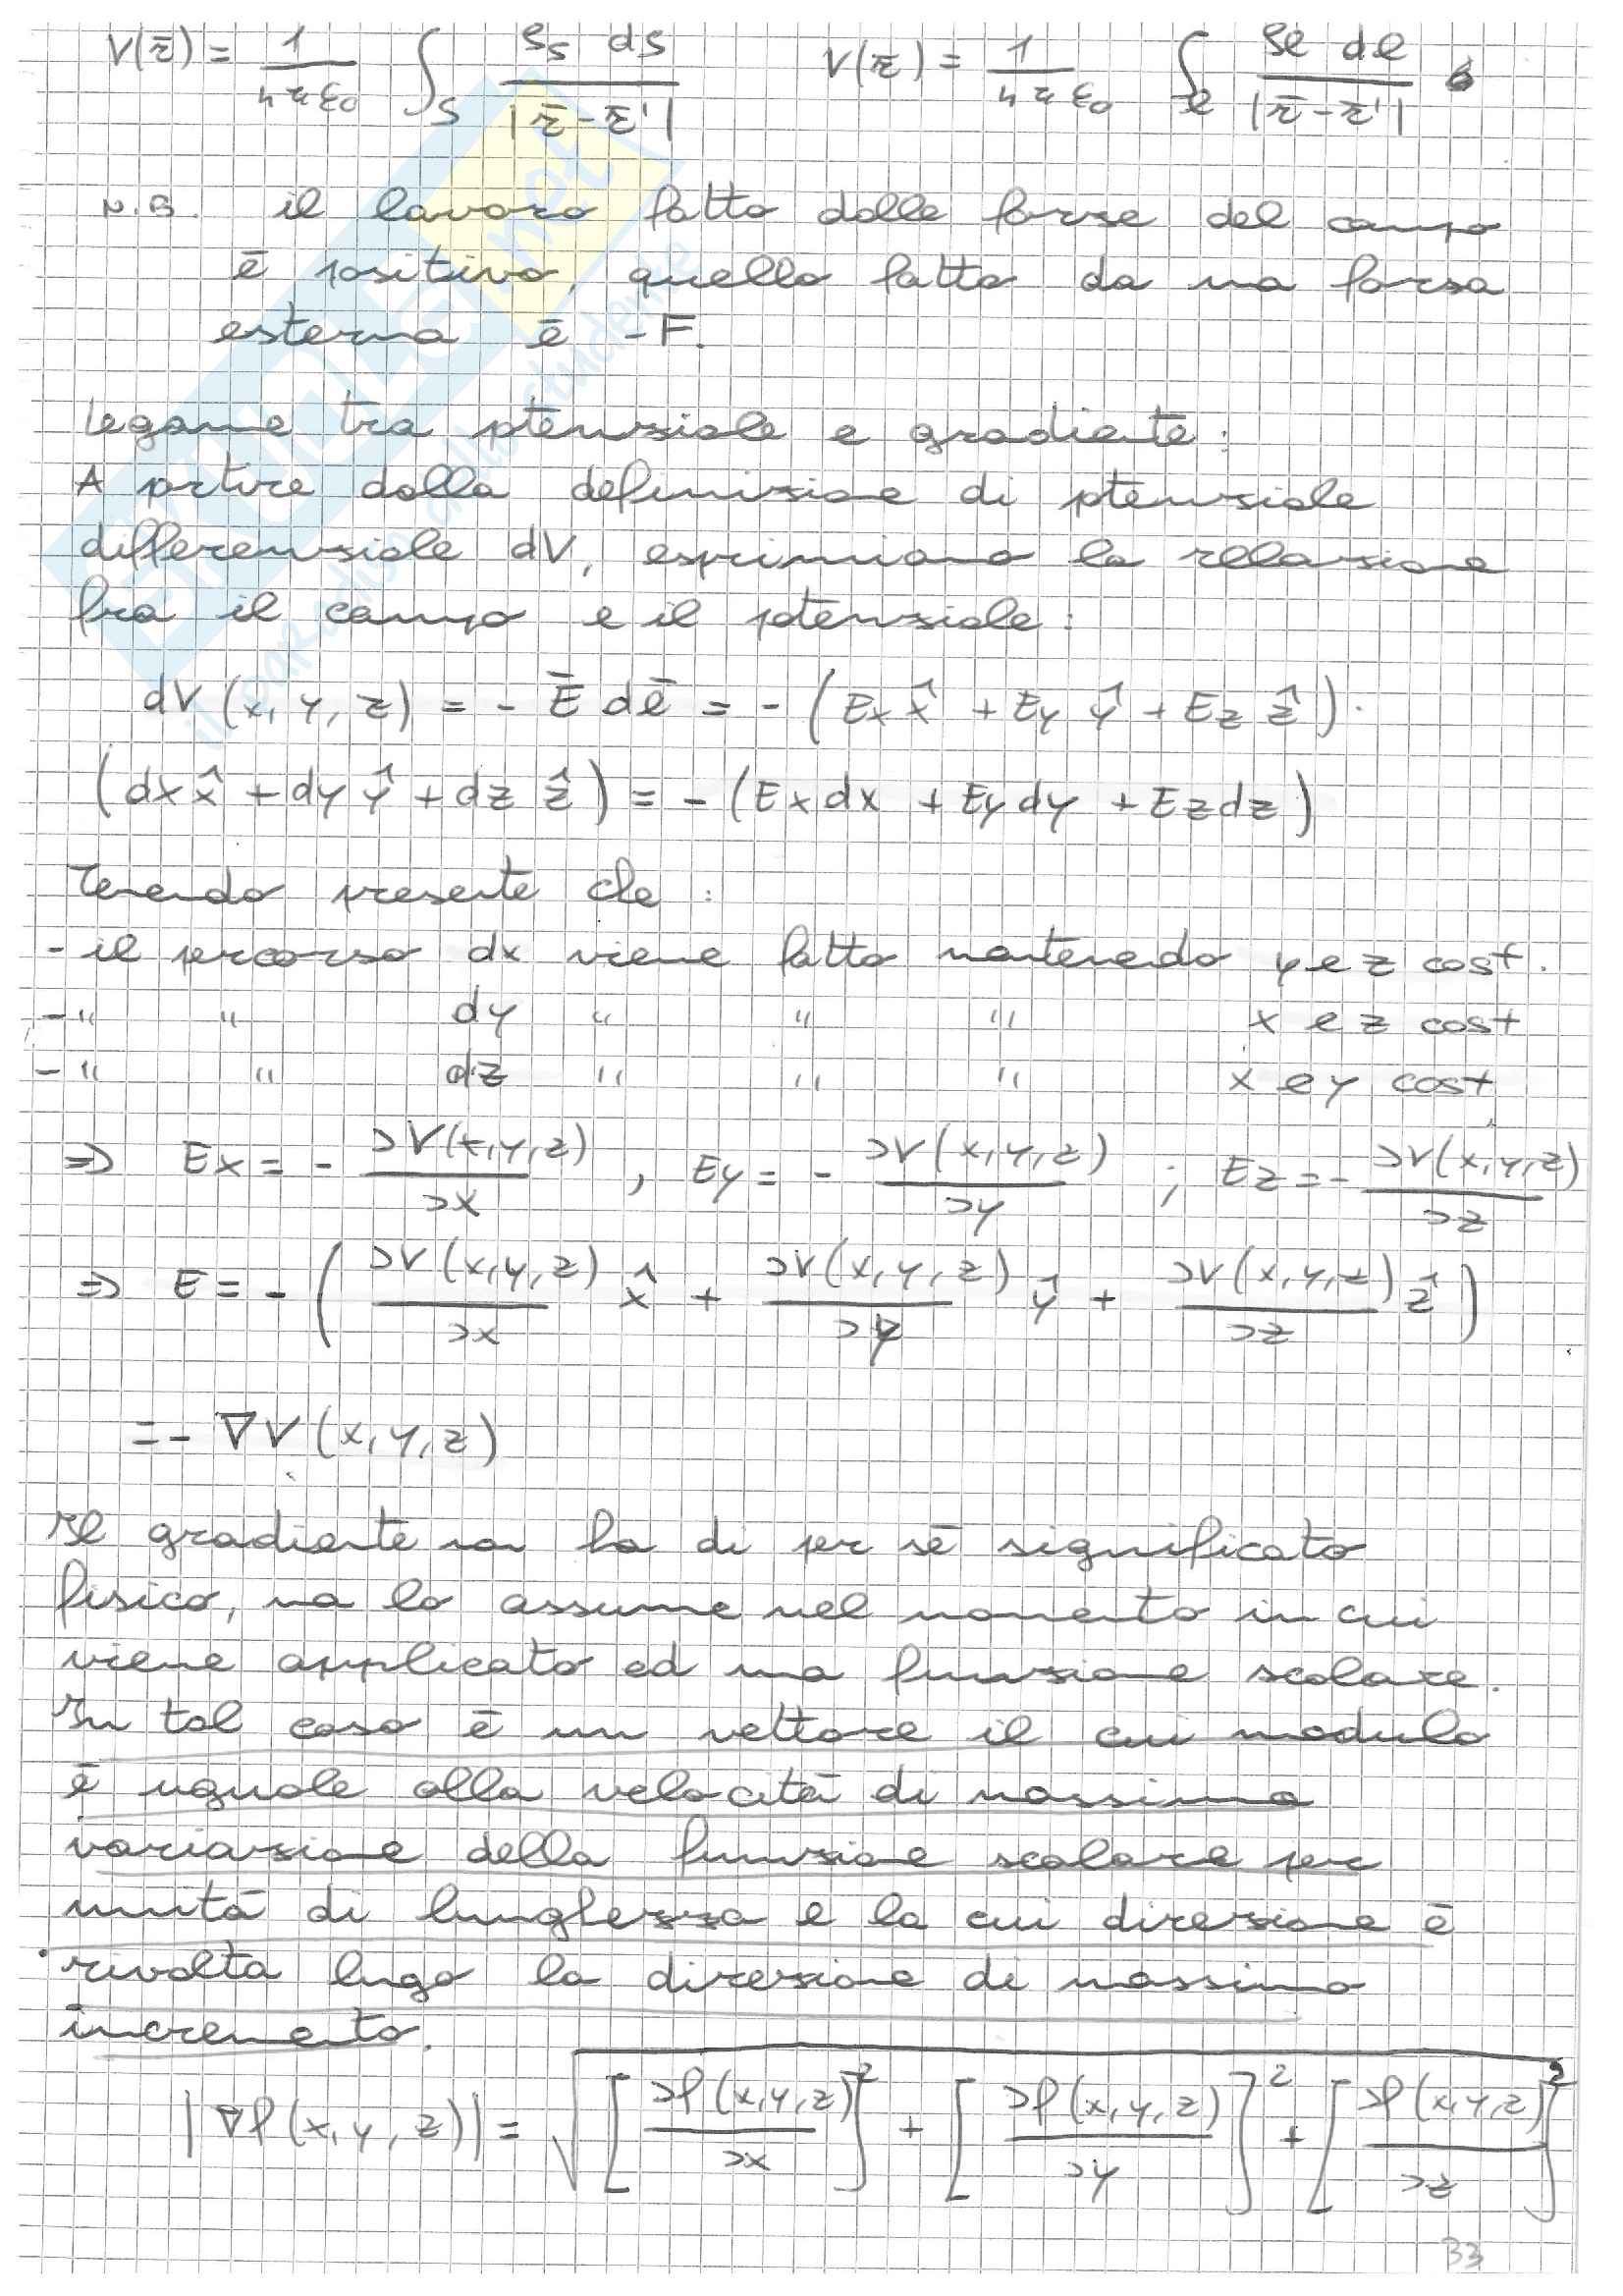 V(r̄) = 1/4πε0 ∫S ρs ds / |r̄ - r̄'|     V(r̄) = 1/4πε0 ∫l ρl dl / |r̄ - r̄'|
N.B. il lavoro fatto dalle forze del campo
è positivo, quello fatto da una forza
esterna è -F.
Legame tra ptenziale e gradiente:
A prtire dalla definizione di ptenziale
differenziale dV, esprimiamo la rellazione
fra il campo e il potenziale:
dV (x, y, z) = - Ē dl̄ = - (Ex x̂ + Ey ŷ + Ez ẑ) ·
(dx x̂ + dy ŷ + dz ẑ) = - (Ex dx + Ey dy + Ez dz)
Tenendo presente che:
- il percorso dx viene fatto mantenendo y e z cost.
- " " dy " " " x e z cost
- " " dz " " " x e y cost
⇒ Ex = - ∂V(x,y,z)/∂x , Ey = - ∂V(x,y,z)/∂y ; Ez = - ∂V(x,y,z)/∂z
⇒ E = - (∂V(x,y,z)/∂x x̂ + ∂V(x,y,z)/∂y ŷ + ∂V(x,y,z)/∂z ẑ)
= - ∇V(x,y,z)
Il gradiente non ha di per sè significato
fisico, ma lo assume nel momento in cui
viene applicato ad una funzione scalare.
In tal caso è un vettore il cui modulo
è uguale alla velocità di massima
variazione della funzione scalare per
unità di lunghezza e la cui direzione è
rivolta lungo la direzione di massimo
incremento.
|∇f(x,y,z)| = √([∂f(x,y,z)/∂x]² + [∂f(x,y,z)/∂y]² + [∂f(x,y,z)/∂z]²)
33